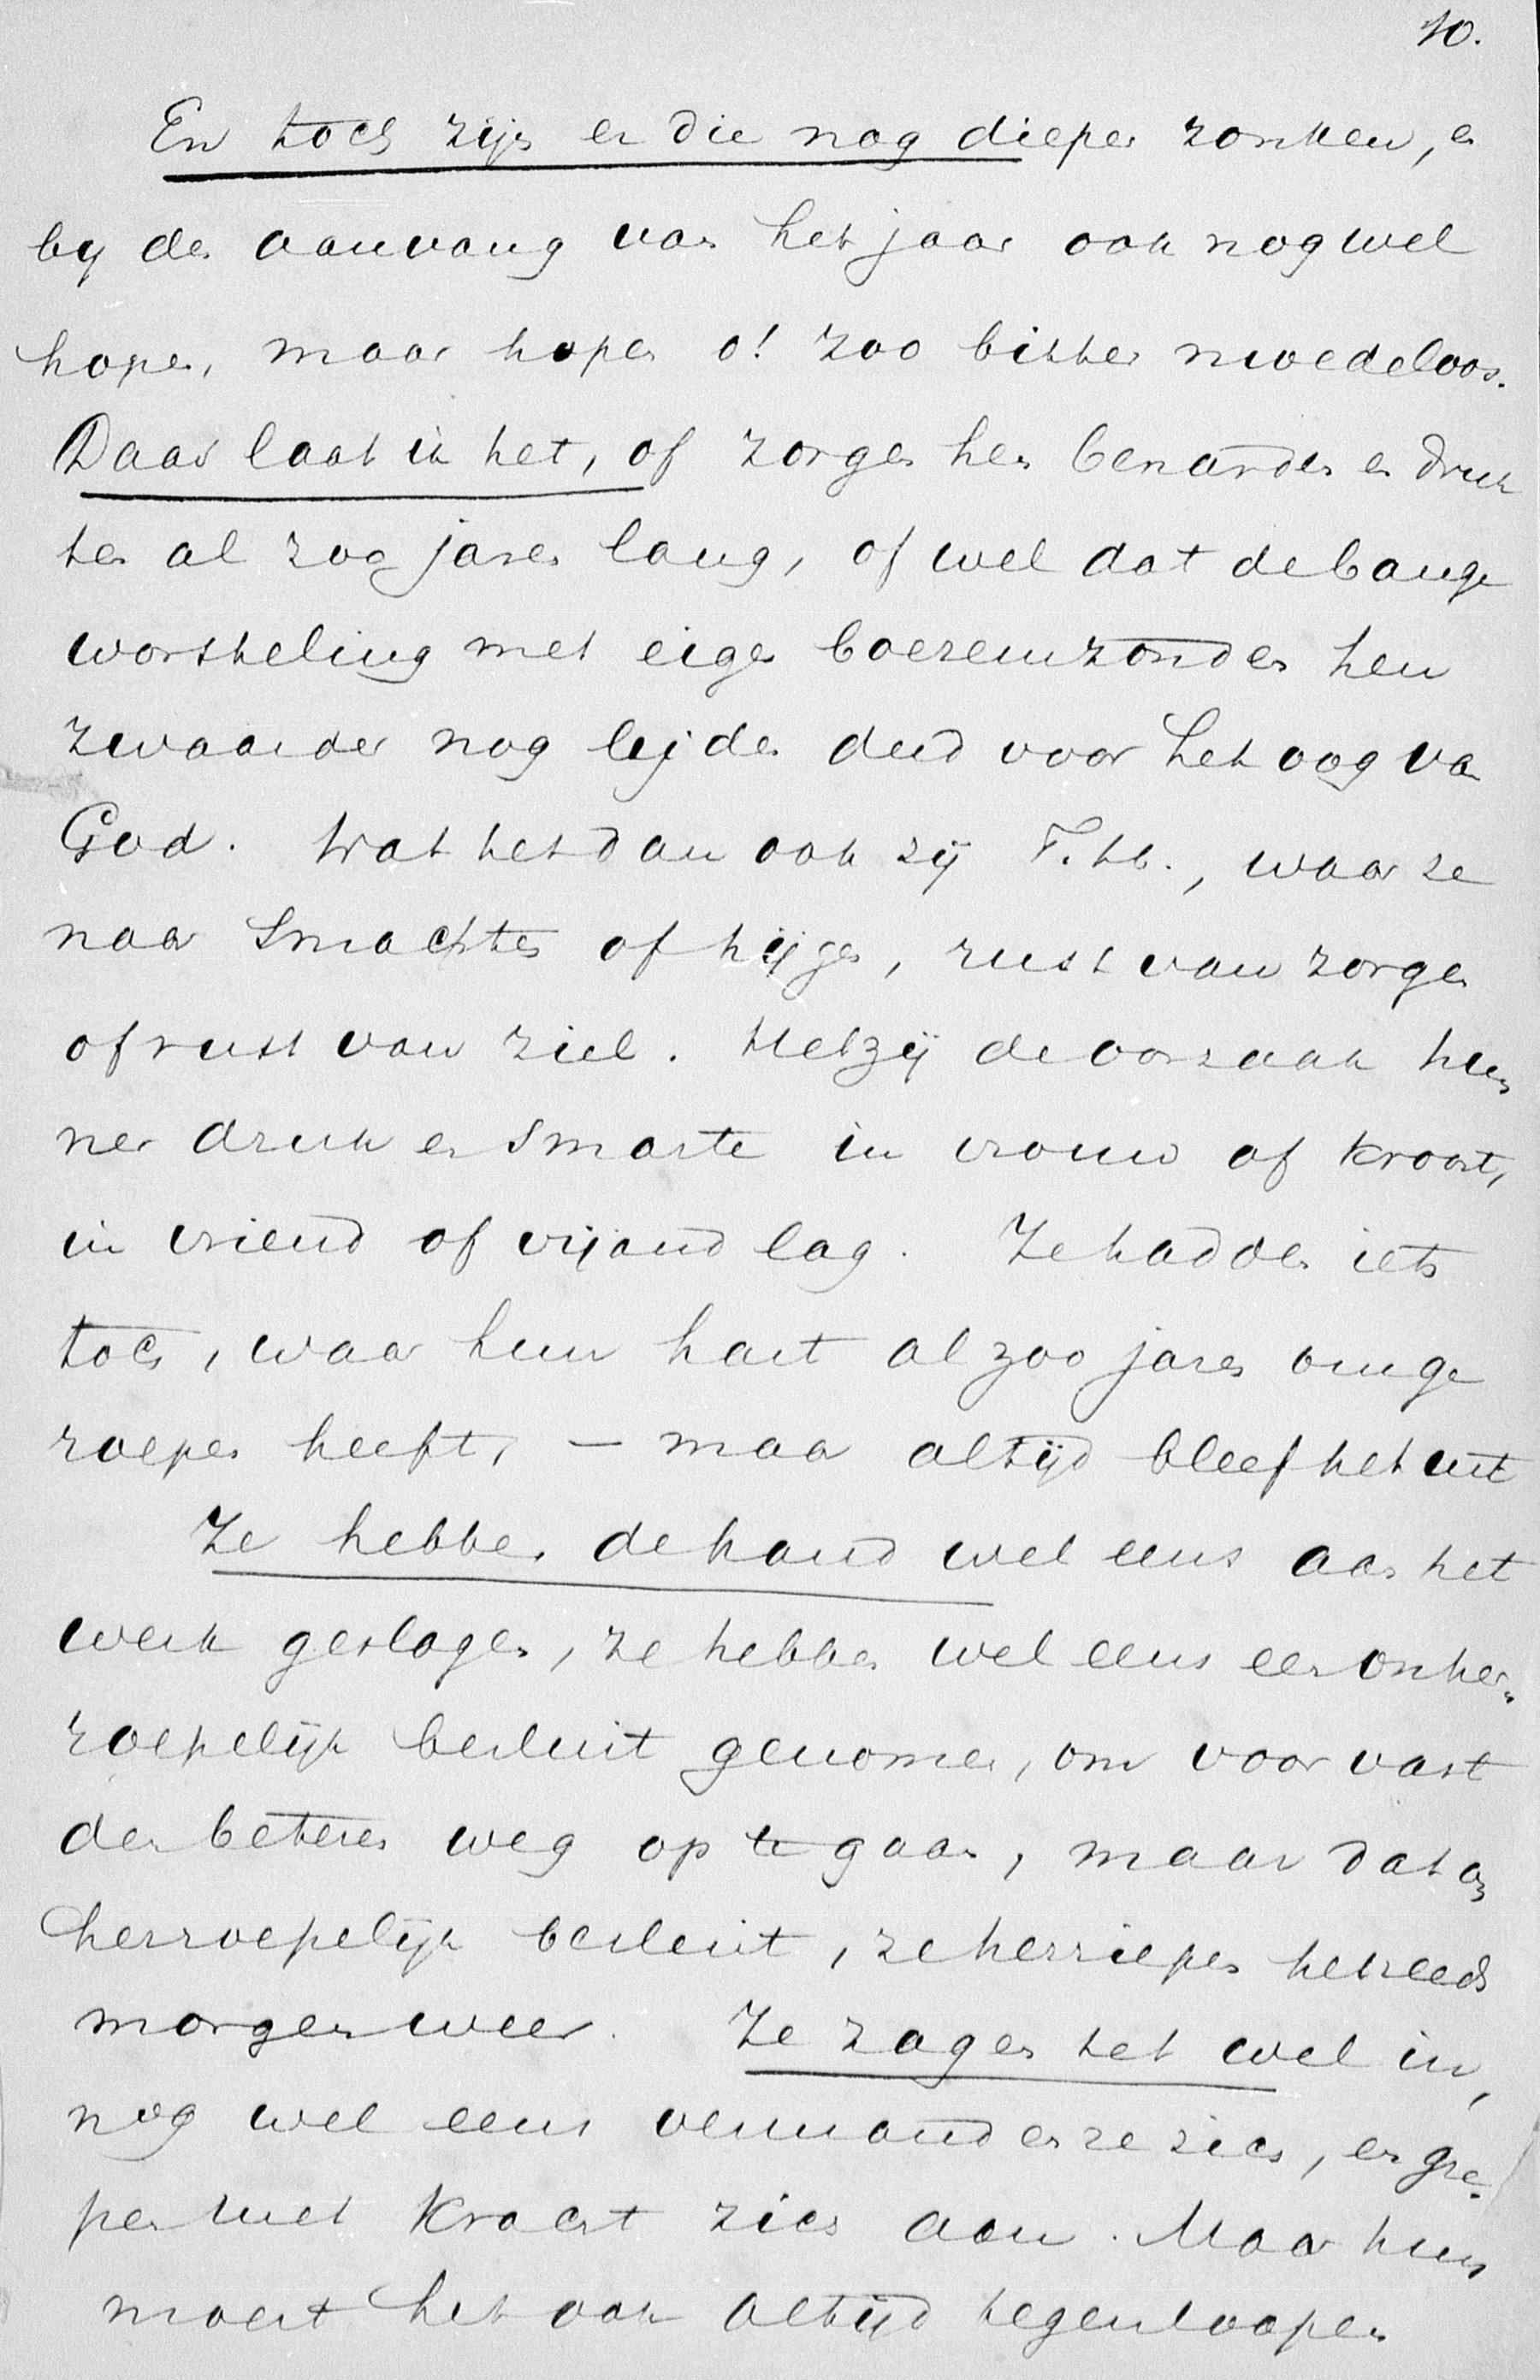 10.
En toch zijn er die nog dieper zonken, en
by den aanvang van het jaar ook nog wel
hopen, maar hopen o! zoo bitter moedeloos.
Daar laat ik het, of zorgen hen benarden en druk
ten al zoo jaren lang, of wel dat de bange
worsteling met eigen boezemzonden hen
zwaarder nog lijden deed voor het oog van
God. Wat het dan ook zij T.h., waar ze
naar smachten of hijgen, rust van zorgen
of rust van ziel. Hetzij de oorzaak hun
ner druk en smarte in vrouw of kroost,
in vriend of vijand lag. Ze hadden iets
toch, waar hun hart al zoo jaren om ge
roepen heeft, – maar altijd bleef het uit
Ze hebben de hand wel eens aan het
werk geslagen, ze hebben wel eens een onher-
roepelijk besluit genomen, om voor vast
den beteren weg op te gaan, maar dat on
herroepelijk besluit, ze herriepen het reeds
morgen weer. Ze zagen het wel in,
nog wel eens vermanden ze zich, en gre-
pen met kracht zich aan. Maar hun
moest het ook altijd tegenloopen